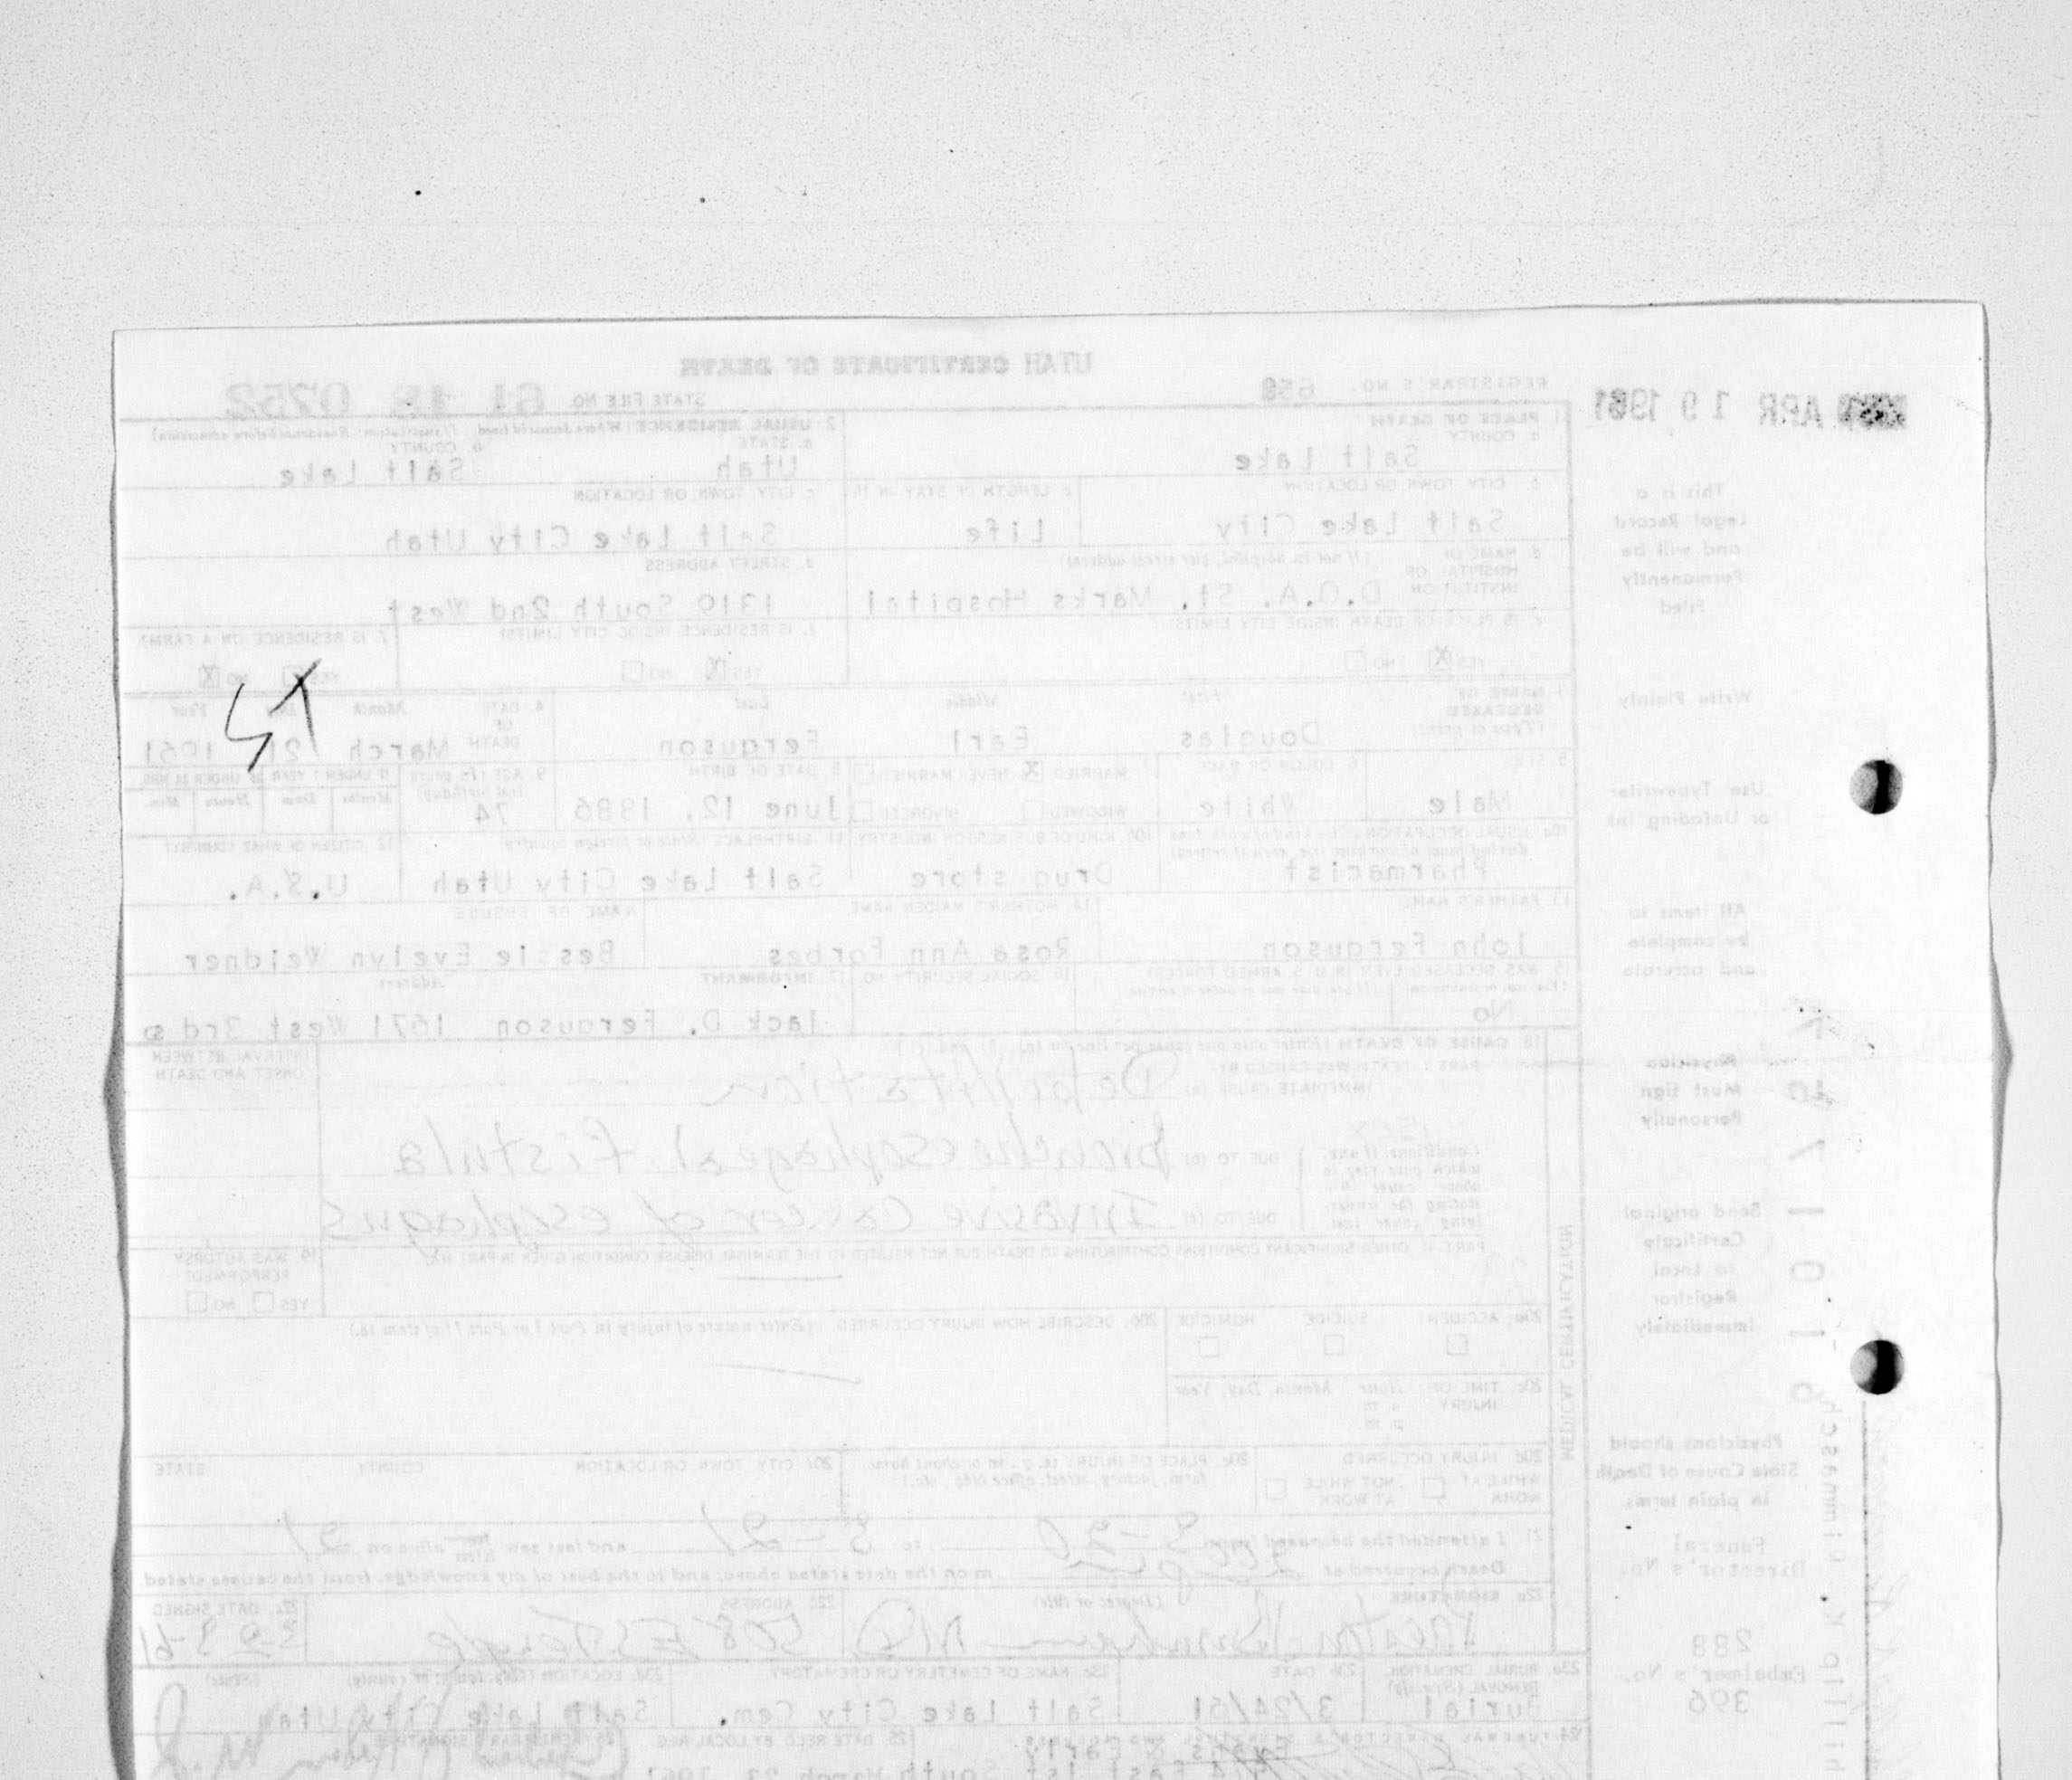 UTAH CERTIFICATE OF DEATH
REGISTRAR'S NO. 658 STATE FILE NO. 61 18 0752
APR 19 1961
1. PLACE OF DEATH
a. COUNTY
Salt Lake
2. USUAL RESIDENCE (Where deceased lived. If institution: Residence before admission)
a. STATE b. COUNTY
Utah Salt Lake
b. CITY, TOWN, OR LOCATION c. LENGTH OF STAY IN 1b
Salt Lake City Life
c. CITY, TOWN, OR LOCATION
Salt Lake City Utah
d. NAME OF HOSPITAL OR INSTITUTION (If not in hospital, give street address)
D.O.A. St. Marks Hospital
d. STREET ADDRESS
1310 South 2nd West
e. IS PLACE OF DEATH INSIDE CITY LIMITS?
YES X NO
e. IS RESIDENCE INSIDE CITY LIMITS?
YES X NO
f. IS RESIDENCE ON A FARM?
YES NO X
3. NAME OF DECEASED (Type or print) First Middle Last
Douglas Earl Ferguson
4. DATE OF DEATH Month Day Year
March 21 1961
5. SEX
Male
6. COLOR OR RACE
White
7. MARRIED X NEVER MARRIED
WIDOWED DIVORCED
8. DATE OF BIRTH
June 12, 1886
9. AGE (In years last birthday)
74
IF UNDER 1 YEAR IF UNDER 24 HRS.
Months Days Hours Min.
10a. USUAL OCCUPATION (Give kind of work done during most of working life, even if retired)
Pharmacist
10b. KIND OF BUSINESS OR INDUSTRY
Drug store
11. BIRTHPLACE (State or foreign country)
Salt Lake City Utah
12. CITIZEN OF WHAT COUNTRY?
U.S.A.
13. FATHER'S NAME
John Ferguson
14. MOTHER'S MAIDEN NAME
Rosa Ann Forbes
NAME OF SPOUSE
Bessie Evelyn Weidner
15. WAS DECEASED EVER IN U. S. ARMED FORCES?
(Yes, no, or unknown) (If yes, give war or dates of service)
No
16. SOCIAL SECURITY NO.
17. INFORMANT Address
Jack D. Ferguson 1671 West 3rd So
18. CAUSE OF DEATH (Enter only one cause per line for (a), (b), and (c).)
PART I. DEATH WAS CAUSED BY:
IMMEDIATE CAUSE (a) Debilitation
INTERVAL BETWEEN ONSET AND DEATH
Conditions, if any, which gave rise to above cause (a), stating the underlying cause last.
DUE TO (b) bronchoesophageal fistula
DUE TO (c) Invasive Cancer of esophagus
PART II. OTHER SIGNIFICANT CONDITIONS CONTRIBUTING TO DEATH BUT NOT RELATED TO THE TERMINAL DISEASE CONDITION GIVEN IN PART I(a)
19. WAS AUTOPSY PERFORMED?
YES NO
20a. ACCIDENT SUICIDE HOMICIDE
20b. DESCRIBE HOW INJURY OCCURRED. (Enter nature of injury in Part I or Part II of item 18.)
20c. TIME OF INJURY Hour Month, Day, Year
a. m.
p. m.
20d. INJURY OCCURRED
WHILE AT WORK NOT WHILE AT WORK
20e. PLACE OF INJURY (e.g., in or about home, farm, factory, street, office bldg., etc.)
20f. CITY, TOWN, OR LOCATION COUNTY STATE
MEDICAL CERTIFICATION
21. I attended the deceased from 3-20 to 3-21 and last saw him alive on 21
Death occurred at m on the date stated above; and to the best of my knowledge, from the causes stated.
22a. SIGNATURE (Degree or title)
MD
22b. ADDRESS
508 E S Temple
22c. DATE SIGNED
3-23-61
23a. BURIAL, CREMATION, REMOVAL (Specify)
Burial
23b. DATE
3/24/61
23c. NAME OF CEMETERY OR CREMATORY
Salt Lake City Cem.
23d. LOCATION (City, town, or county) (State)
Salt Lake City Utah
24. FUNERAL DIRECTOR'S SIGNATURE AND ADDRESS
Evans & Early.
574 East 1st South
25. DATE REC'D BY LOCAL REG.
March 23, 1961
26. REGISTRAR'S SIGNATURE
This is a
Legal Record
and will be
Permanently
Filed
Write Plainly
Use Typewriter
or Unfading Ink
All items to
be complete
and accurate
Physician
Must Sign
Personally
Send original
Certificate
to Local
Registrar
Immediately
Physicians should
State Cause of Death
in plain terms
Funeral
Director's No.
288
Embalmer's No.
396